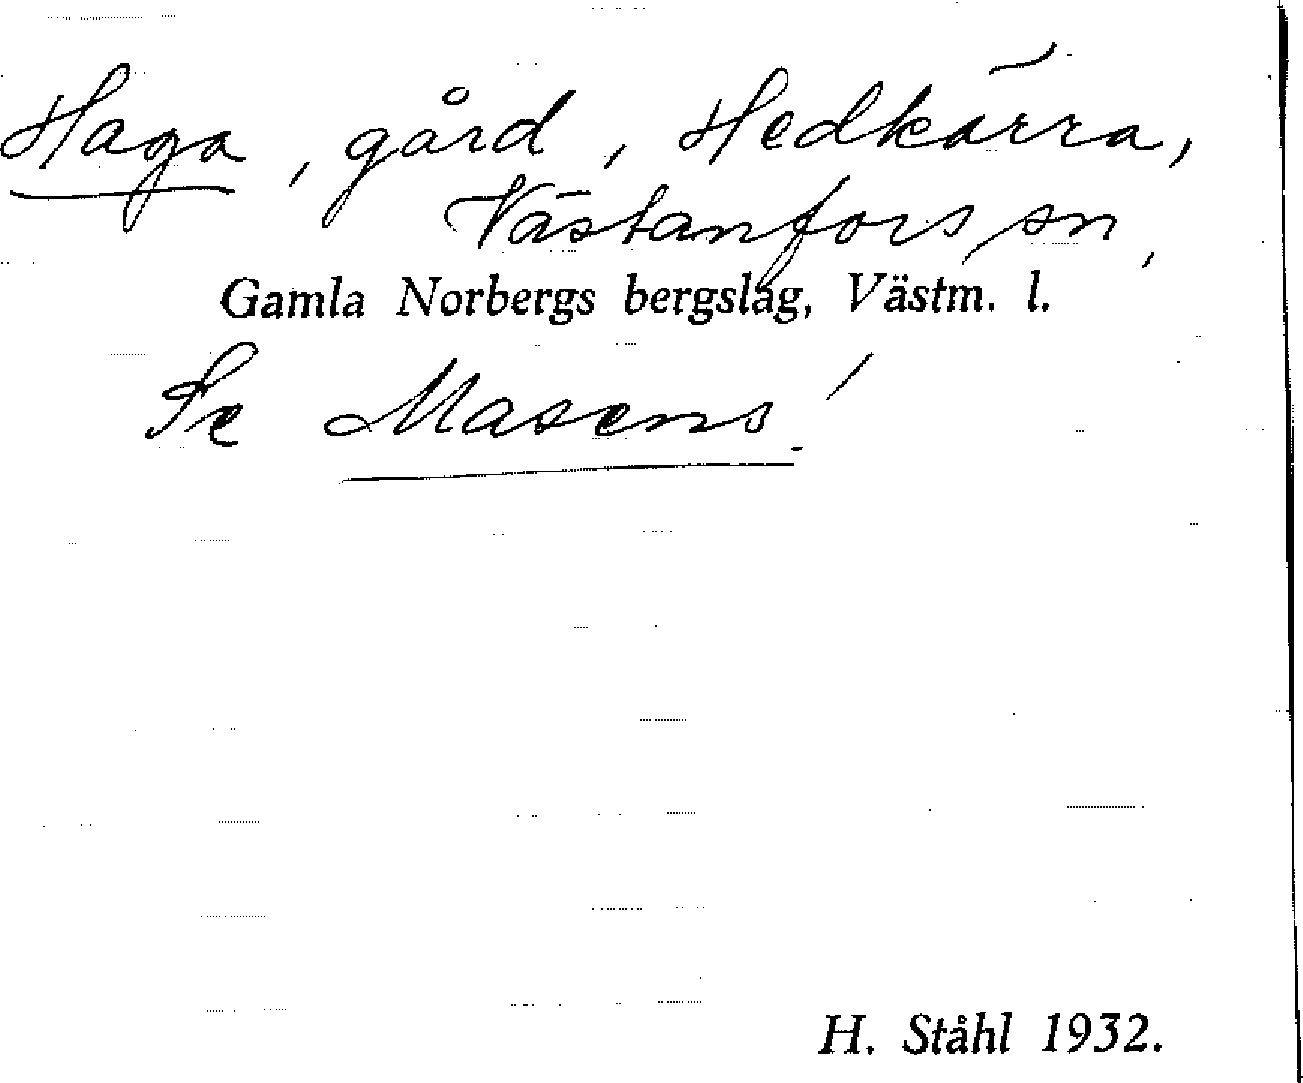 Haga, gård, Hedkärra,
Västanfors sn,
Gamla Norbergs bergslag, Västm. l.
Se Masens!
H. Ståhl 1932.